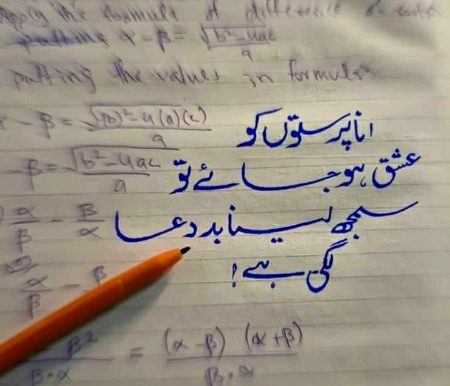 Apply the formula of difference of roots
putting α − β = √b²−4ac / a
putting the values in formula
α − β = √(b)²−4(a)(c) / a
− β = √b²−4ac / a
α/β − β/α
α/β − β
β² / β·α = (α−β) (α+β) / β·α
انا پرستوں کو
عشق ہو جائے تو
سمجھ لینا بددعا
لگی ہے!